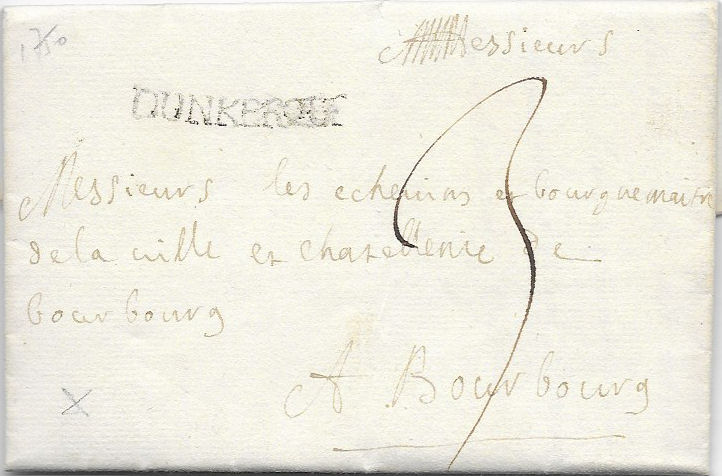 1750
Messieurs
DUNKERQUE
Messieurs les echevins et bourguemaitre
de la ville et chatellenie de
bourbourg
3
A Bourbourg
X